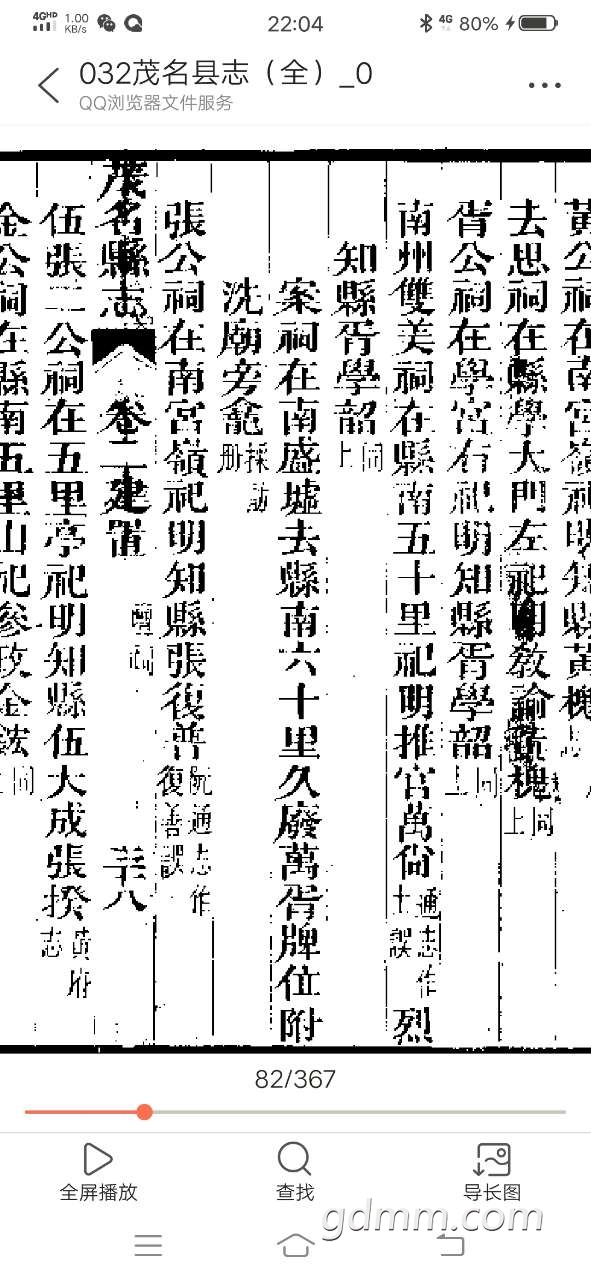 4GHD 1.00 KB/s 22:04 4G 80%
032茂名县志（全）_0
QQ浏览器文件服务
黃公祠在南宮嶺祀明知縣黃槐志
去思祠在縣學大門左祀明教諭 槐同上
胥公祠在學宮右祀明知縣胥學韶同上
南州雙美祠在縣南五十里祀明推官萬尙通志作士誤烈
知縣胥學韶同上
案祠在南盛墟去縣南六十里久廢萬胥牌位附
冼廟旁龕採訪册
張公祠在南宮嶺祀明知縣張復普阮通志作復善誤
茂名縣志 卷二 建置 壇祠 三十八
伍張二公祠在五里亭祀明知縣伍大成張揆黃府志
金公祠在縣南五里山祀參政金鋐同上
82/367
全屏播放
查找
导长图
gdmm.com